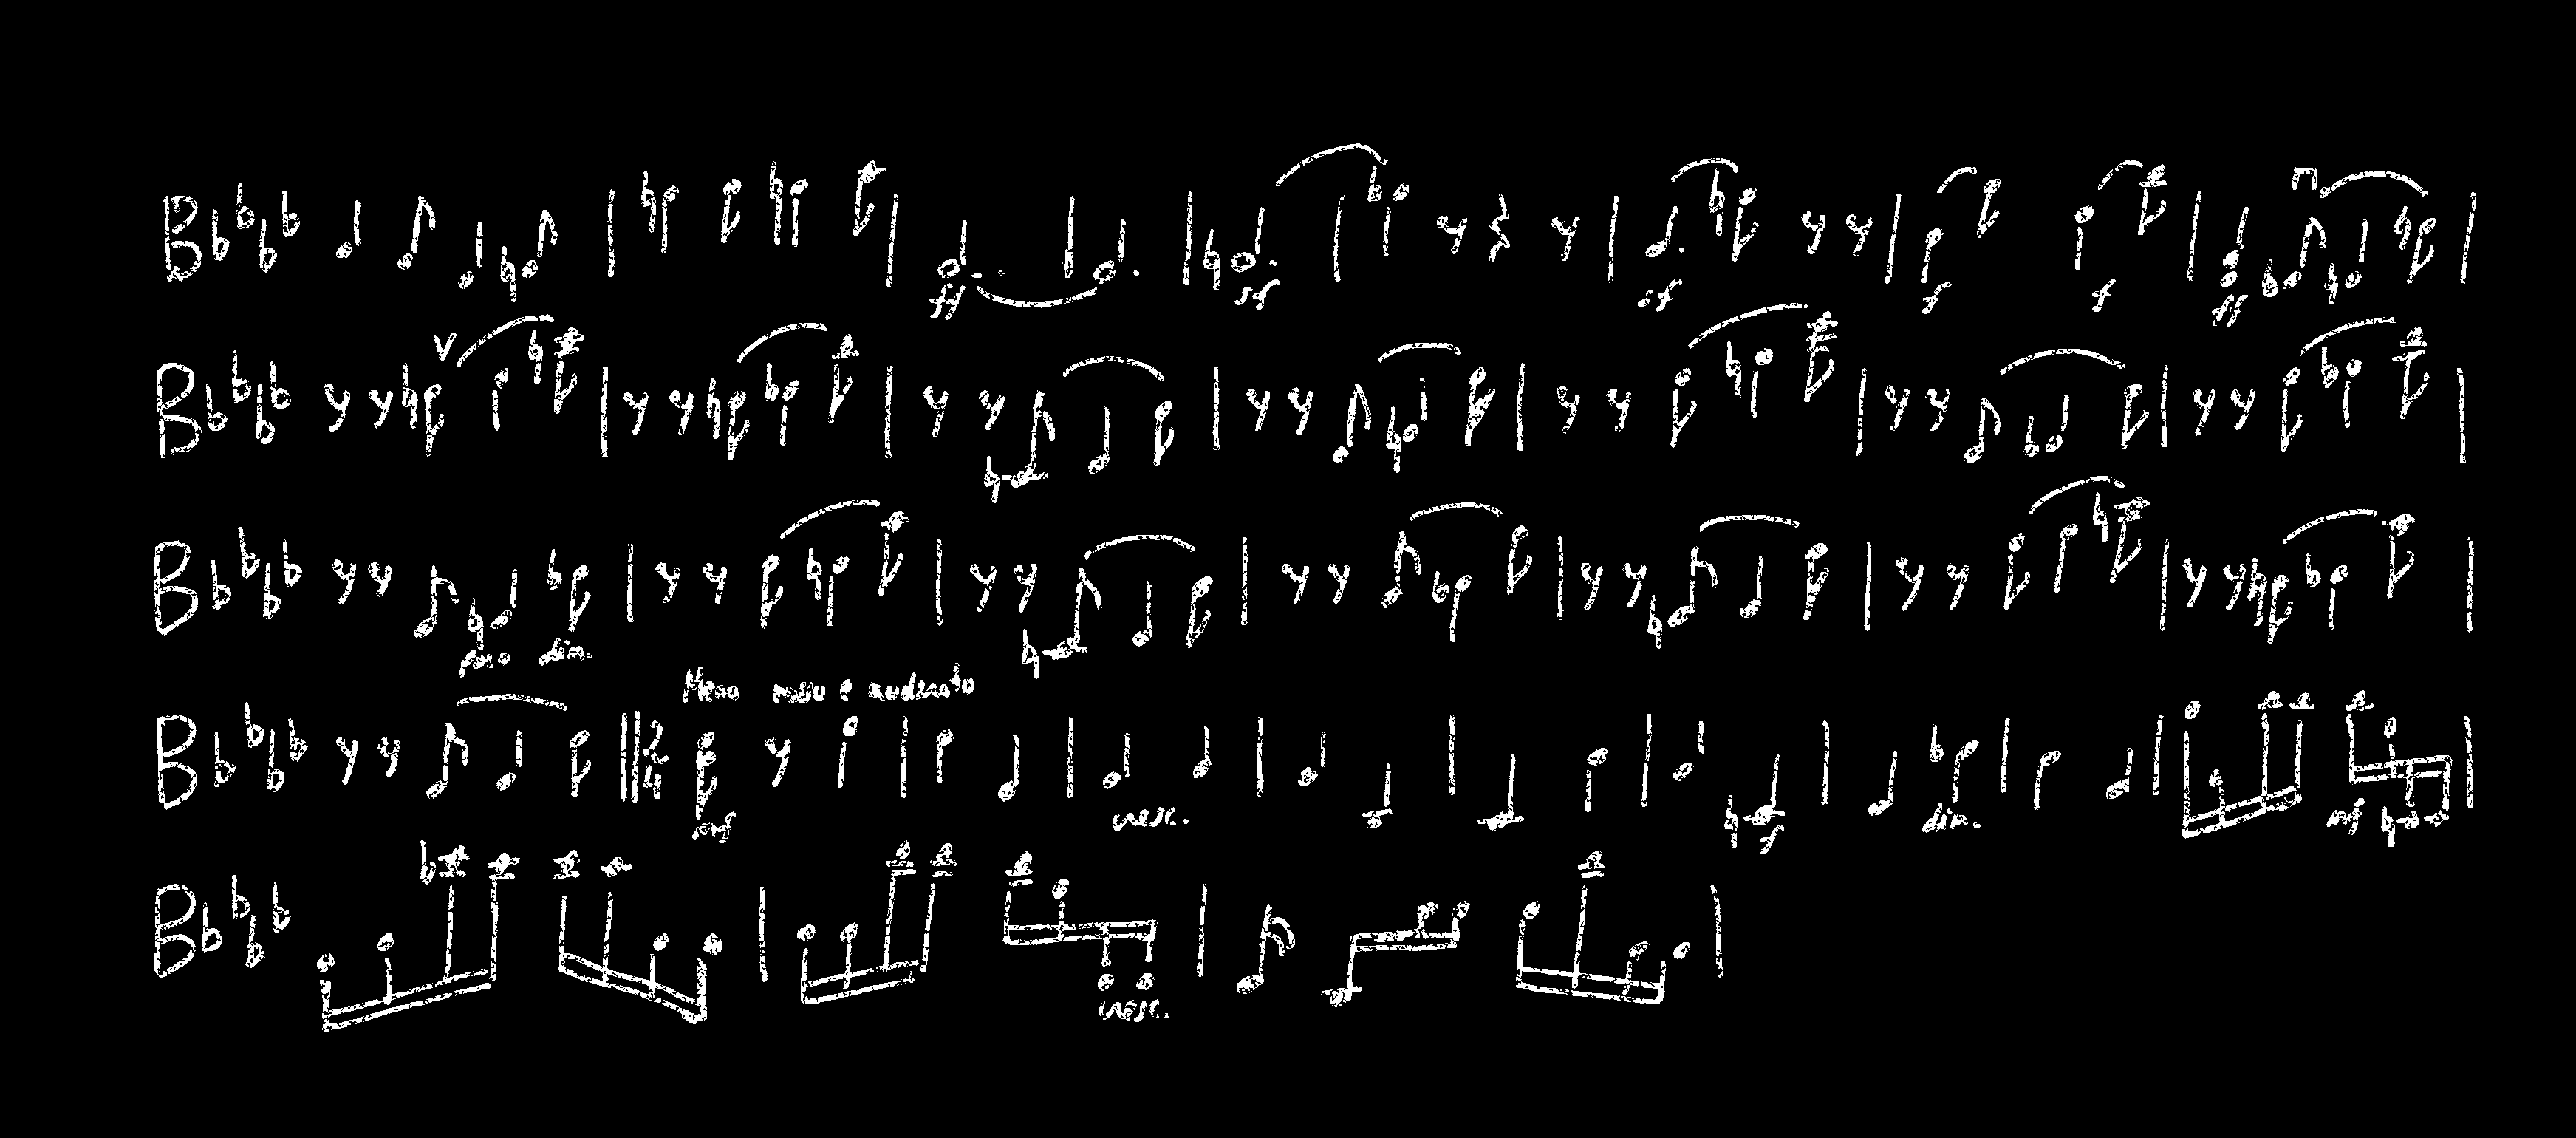 ff sf sf f f ff
V
dim.
Meno mosso e moderato
mf cresc. f dim. mf
cresc.